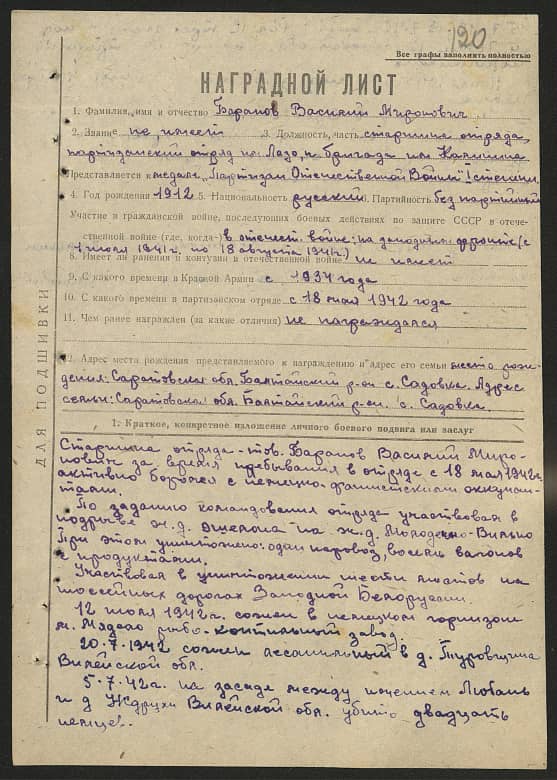 120
Все графы заполнять полностью
НАГРАДНОЙ ЛИСТ
1. Фамилия, имя и отчество Баранов Василий Миронович
2. Звание не имеет 3. Должность, часть старшина отряда,
партизанский отряд им Лазо, бригада им Калинина
Представляется к медали „Партизан Отечественной Войны" I степени
4. Год рождения 1912 5. Национальность русский 6. Партийность без партийный
Участие в гражданской войне, последующих боевых действиях по защите СССР в отече-
ственной войне (где, когда) в отечест. войне: на западном фронте (с
1 июля 1941г. по 18 августа 1941г.)
8. Имеет ли ранения и контузии в отечественной войне не имеет
9. С какого времени в Красной Армии с 1934 года
10. С какого времени в партизанском отряде с 18 мая 1942 года
11. Чем ранее награжден (за какие отличия) не награждался
12. Адрес места рождения представляемого к награждению и адрес его семьи место рож-
дения: Саратовская обл. Балтайский р-он с. Садовка. Адрес
семьи: Саратовская обл. Балтайский р-он. с. Садовка.
ДЛЯ ПОДШИВКИ
1. Краткое, конкретное изложение личного боевого подвига или заслуг
Старшина отряда тов. Баранов Василий Миро-
нович за время пребывания в отряде с 18 мая 1942г.
активно боролся с немецко-фашистскими оккупан-
тами.
По заданию командования отряда участвовал в
подрыве ж.д. эшелона на ж.д. Молодечно-Вильно
При этом уничтожено: один паровоз, восемь вагонов
с продуктами.
Участвовал в уничтожении шести мостов на
шоссейных дорогах Западной Белоруссии.
12 июля 1942г. сожжен в немецком гарнизоне
м. Мядель рыбо-коптильный завод.
20.7.1942 сожжен лесопильный в д. Туровщина
Вилейской обл.
5.7.42г. на засаде между имением Любань
и д Вилейской обл. убито двадцать
немцев.